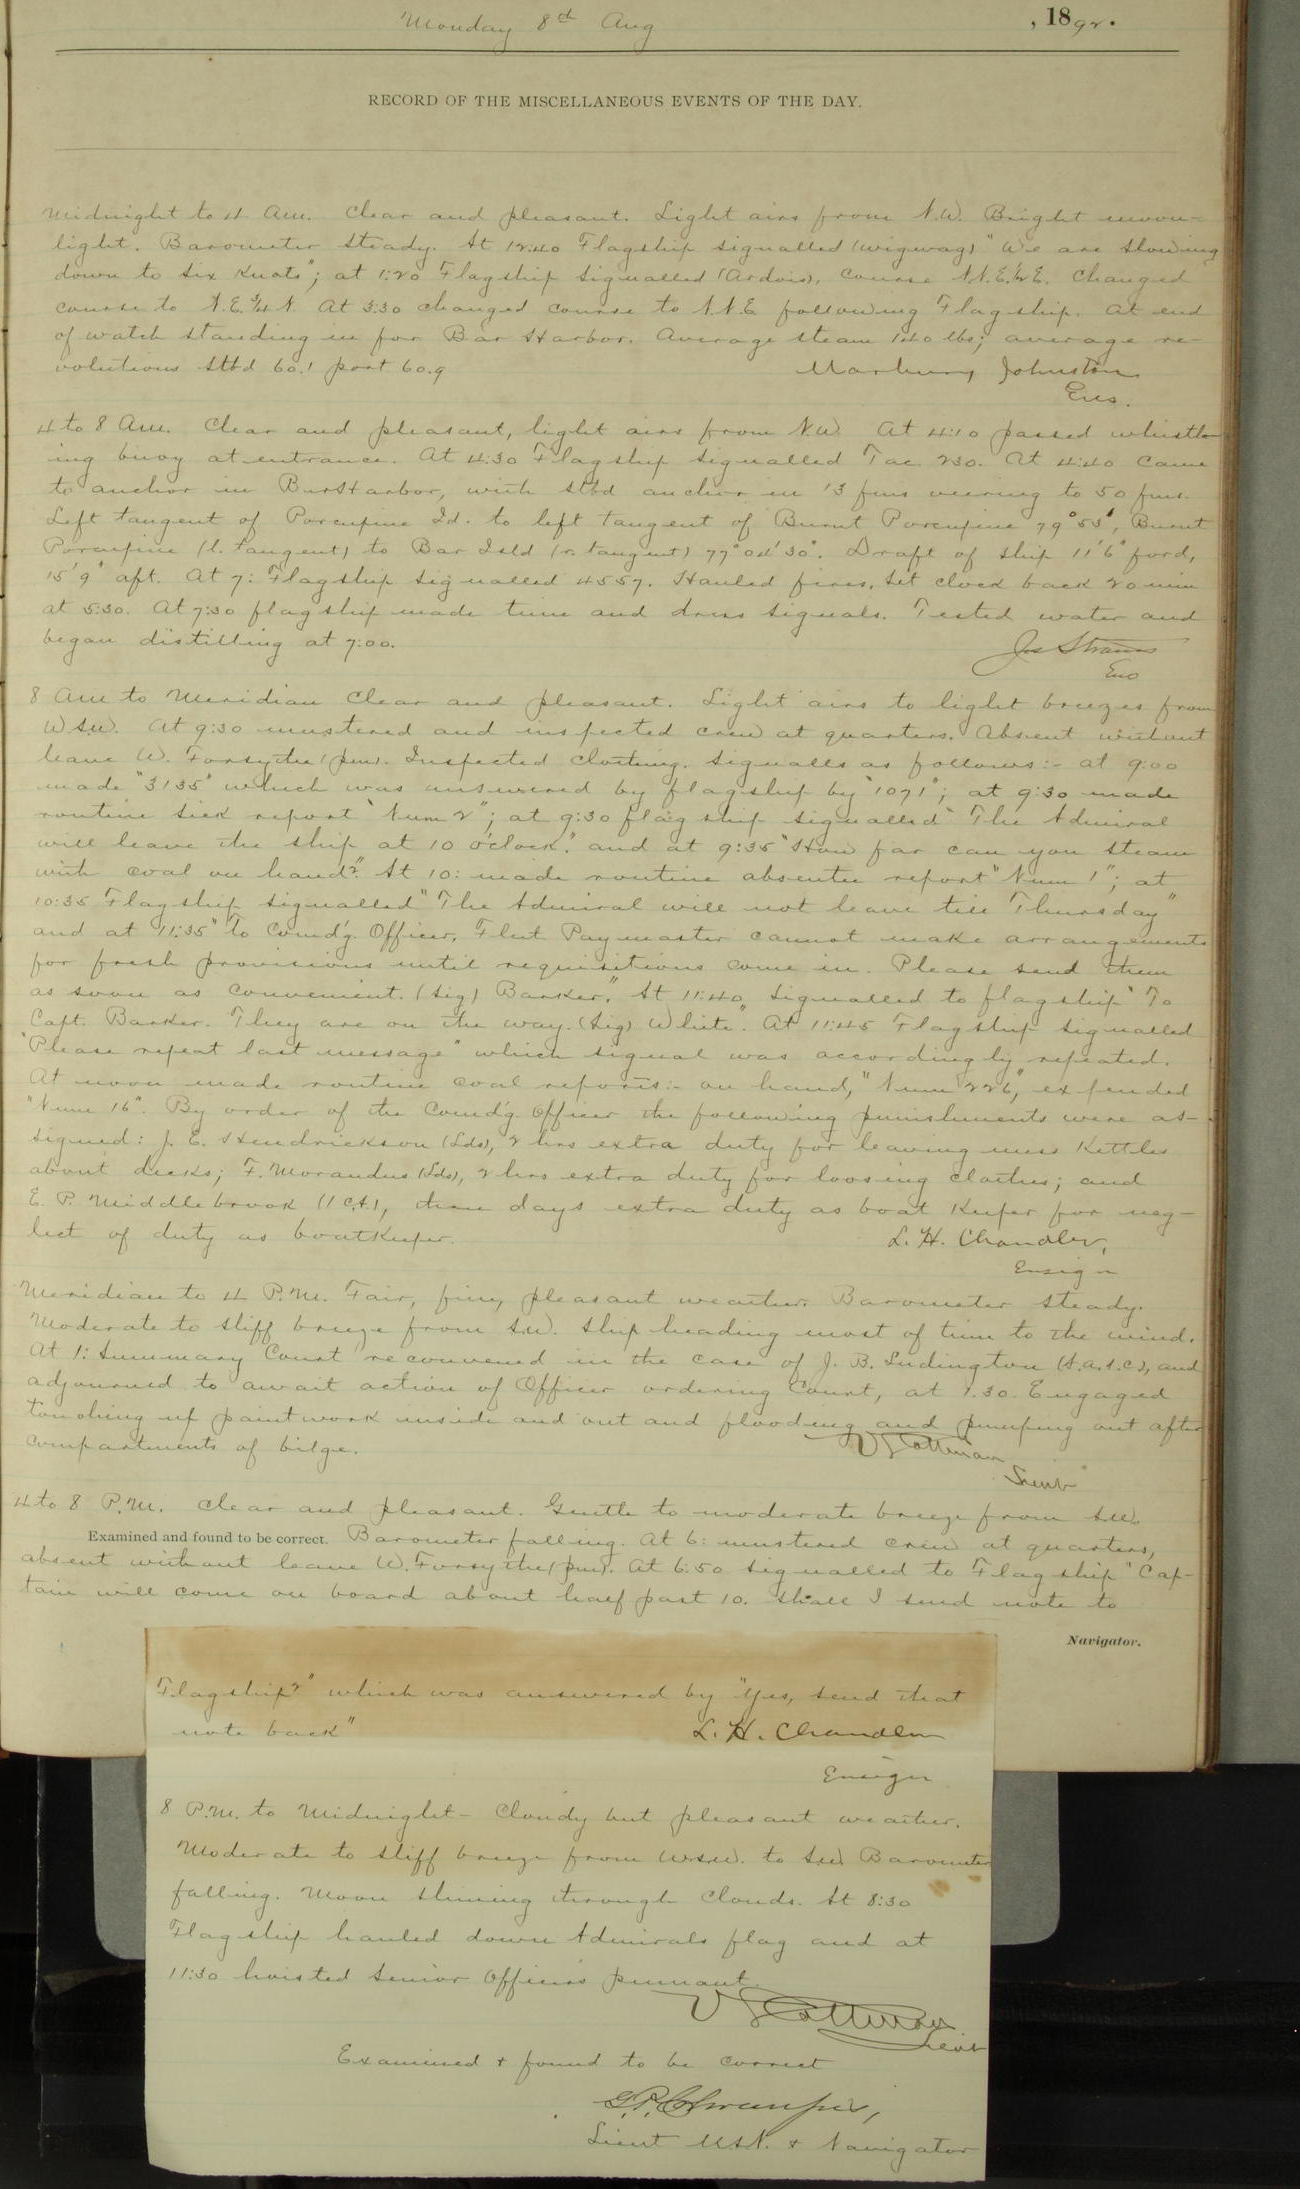 Monday 8th Aug , 1892.
RECORD OF THE MISCELLANEOUS EVENTS OF THE DAY.
Midnight to 4 Am. Clear and pleasant. Light airs from N.W. Bright moon-
light. Barometer steady. At 12:40 Flagship signalled (wigwag) "We are slowing
down to six knots"; at 1:20 Flagship signalled (Ardois), course N.N.E.½E. Changed
course to N.E.¾N. At 3:30 changed course to N.N.E following Flagship. At end
of watch standing in for Bar Harbor. Average steam 140 lbs; average re-
volutions stbd 60.1 port 60.9
Marbury Johnston
Ens.
4 to 8 Am. Clear and pleasant, light airs from N.W. At 4:10 passed whistl-
ing buoy at entrance. At 4:30 Flagship signalled Tac 230. At 4:40 came
to anchor in Bar Harbor, with stbd anchor in 13 fms veering to 50 fms.
Left tangent of Porcupine Id. to left tangent of Burnt Porcupine 79° 53', Burnt
Porcupine (l. tangent) to Bar Isld (r. tangent) 77° 04' 30". Draft of ship 11' 6" ford,
15' 9" aft. At 7: Flagship signalled 4557. Hauled fires. Set clock back 20 min
at 5:30. At 7:30 flagship made time and dress signals. Tested water and
began distilling at 7:00.
Jos Strauss
Ens
8 Am to Meridian Clear and pleasant. Light airs to light breezes from
WSW. At 9:30 mustered and inspected crew at quarters. Absent without
leave W. Forsythe (pm). Inspected clothing. Signalls as follows:- at 9:00
made "3135" which was answered by flagship by "1071"; at 9:30 made
routine sick report "Num 2"; at 9:30 flagship signalled "The Admiral
will leave the ship at 10 o'clock." and at 9:35 "How far can you steam
with coal on hand?" At 10: made routine absentee report "Num 1"; at
10:35 Flagship signalled "The Admiral will not leave till Thursday"
and at 11:35 "To Comd'g Officer, Fleet Paymaster cannot make arrangements
for fresh provisions until requisitions come in. Please send them
as soon as convenient. (Sig) Barker." At 11:40 signalled to flagship "To
Capt. Barker. They are on the way. (Sig) White". At 11:45 Flagship signalled
"Please repeat last message" which signal was accordingly repeated.
At noon made routine coal reports:- on hand, "Num 226", expended
"Num 16". By order of the Comd'g Officer the following punishments were as-
signed: J. E. Hendrickson (Lds), 2 hrs extra duty for leaving mess kettles
about decks; F. Morandus (Lds), 2 hrs extra duty for loosing clothes; and
E. P. Middlebrook (1 c.A.), three days extra duty as boat keeper for neg-
lect of duty as boatkeeper.
L. H. Chandler,
Ensign
Meridian to 4 P.M. Fair, fine, pleasant weather. Barometer steady.
Moderate to stiff breeze from S.W. Ship heading most of time to the wind.
At 1: Summary Court reconvened in the case of J. B. Ludington (S.a.1.c.), and
adjourned to await action of Officer ordering Court, at 1.30. Engaged
touching up paintwork inside and out and flooding and pumping out after
compartments of bilge.
Lieut
4 to 8 P.M. Clear and pleasant. Gentle to moderate breeze from S.W.
Examined and found to be correct. Barometer falling. At 6: mustered crew at quarters,
absent without leave W. Forsythe (pm). At 6:50 signalled to Flagship "Cap-
tain will come on board about half past 10. Shall I send note to
Navigator.
Flagship?" which was answered by "Yes, send that
note back"
L. H. Chandler
Ensign
8 P.M. to Midnight - Cloudy but pleasant weather.
Moderate to stiff breeze from W.S.W. to S.W. Barometer
falling. Moon shining through clouds. At 8:30
Flagship hauled down Admirals flag and at
11:30 hoisted Senior Officers pennant.
Lieut
Examined & found to be correct
Lieut U.S.N. & Navigator